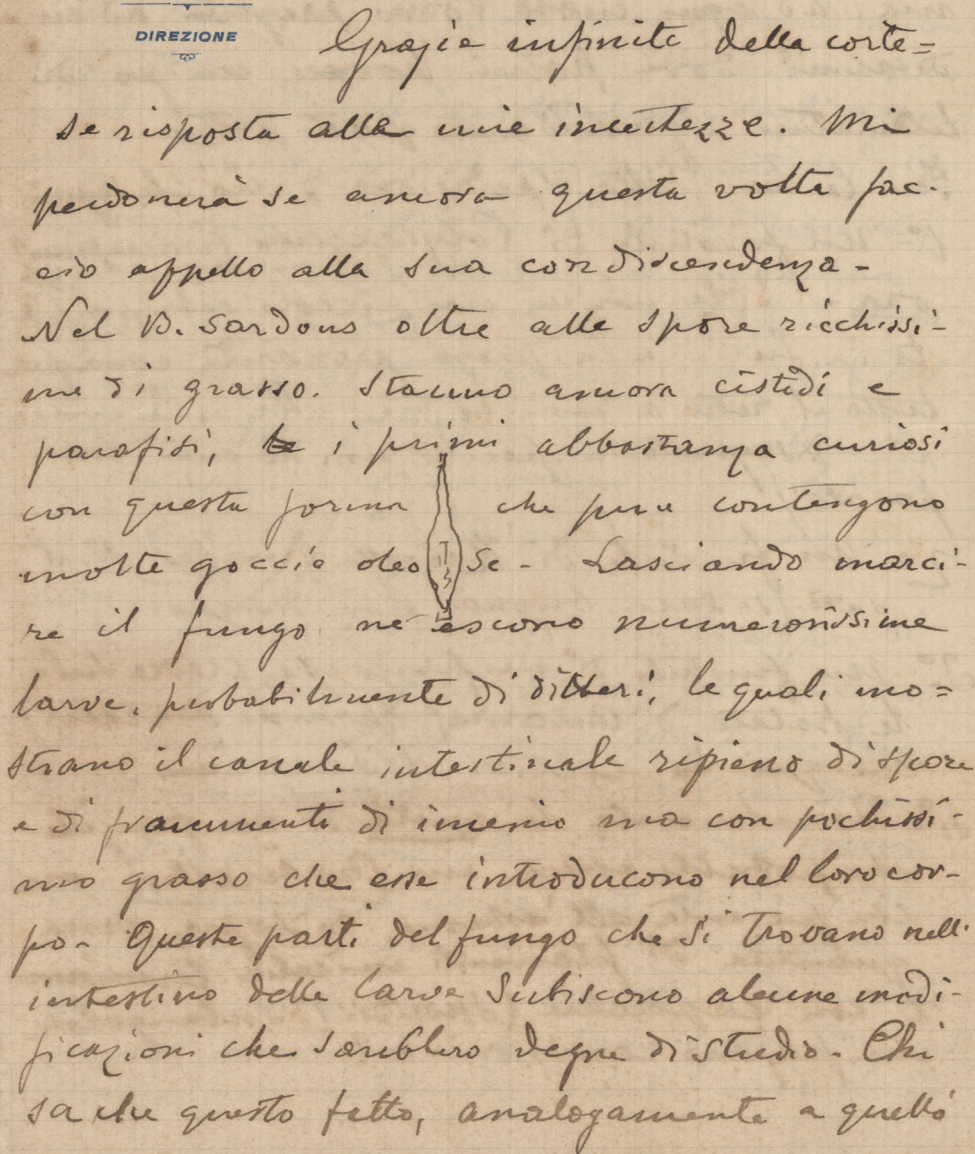 DIREZIONE
Grazie infinite della corte=
se risposta alle mie incertezze. Mi
perdonerà se ancora questa volta fac-
cio appello alla sua condiscendenza -
Nel B. Sardous oltre alle spore ricchissi-
me di grasso. Stanno ancora cistidi e
parafisi, i primi abbastanza curiosi
con questa forma che pure contengono
molte goccie oleose - Lasciando marci-
re il fungo ne escono numerosissime
larve, probabilmente di ditteri, le quali mo=
strano il canale intestinale ripieno di spore
e di frammenti di imenio ma con pochissi-
mo grasso che esse introducono nel loro cor-
po - Queste parti del fungo che si trovano nell'
intestino delle larve subiscono alcune modi-
ficazioni che sarebbero degne di studio - Chi
sa che questo fatto, analogamente a quello